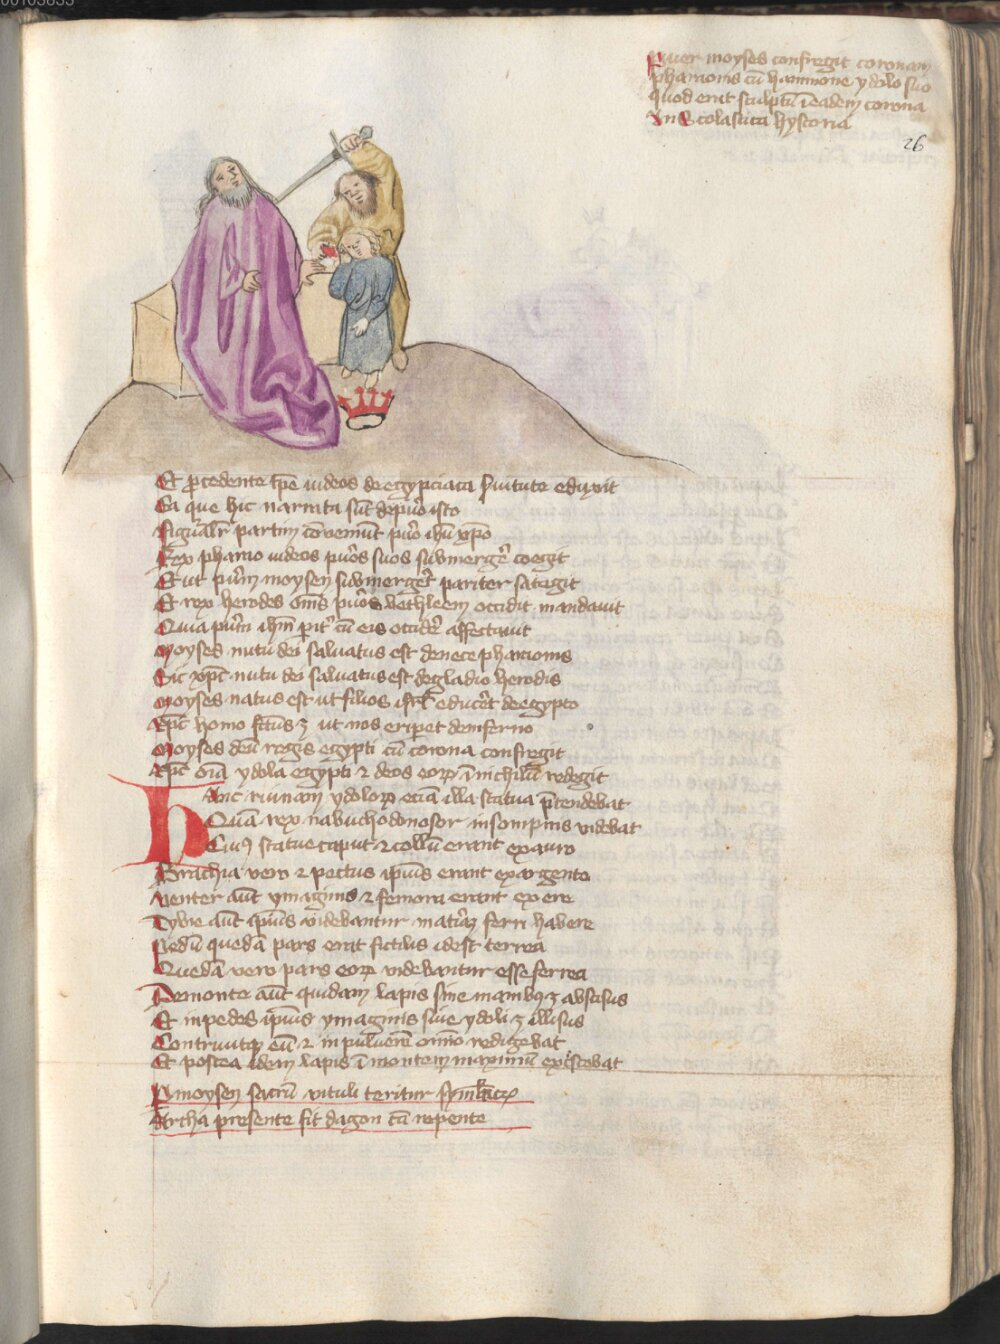 00103633
Puer moyses confregit coronam
pharaonis cū hammone ydolo suo
Quod erat sculptū ī eadem corona
In Scolastica hystoria
26
Et p̄cedente tp̄e iudeos de egypciaca s̄uitute eduxit
Ea que hic narrata sūt de pu̓o isto
Figuralr̄ partim cōveniunt pu̓o ih̄u xp̄o
Rex pharao iudeos pu̓os suos submerge̓ coegit
Et ut pu̓m moysen submerge̓t pariter sategit
Et rex herodes om̄s pu̓os bethleem occidi mandauit
Quia pu̓m ih̄m pit̓ cū eis occide̓ affectauit
Moyses nutu dei saluatus est de nece pharaonis
Sic xp̄c nutu dei saluatus est de gladio herodis
Moyses natus est ut filios isrl̄ educe̓t de egypto
Xp̄c homo fc̄tus ꝫ ut nos eriperet de inferno
Moyses deū regis egypti cū corona confregit
Xp̄c om̄a ydola egypti ⁊ deos eoꝝ ī nichilū redegit
Hanc ruinam ydoloꝝ eciā illa statua p̄tendebat
Quā rex nabuchodonosor in sompnis videbat
Cuiꝰ statue caput ⁊ collū erant ex auro
Brachia vero ⁊ pectus ip̄ius erant ex argento
Venter aūt ymaginis ⁊ femora erant ex ere
Tybie aūt ip̄ius videbantur mat̓iā ferri habere
Pedū quedā pars erat fictilis id est terrea
Quedā vero pars eoꝝ videbantur esse ferrea
De monte aūt quidam lapis sine manibꝰ ꝫ abscisus
Et in pedes ip̄ius ymaginis siue ydoli ꝫ illisus
Contriuitqꝫ eū ⁊ in puluerē om̄ino redigebat
Et postea idem lapis ī montem maximū excrescebat
P moysen sacrū vituli teritur
Artha presente fit dagon repente